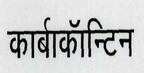 कार्बाकॉन्टिन